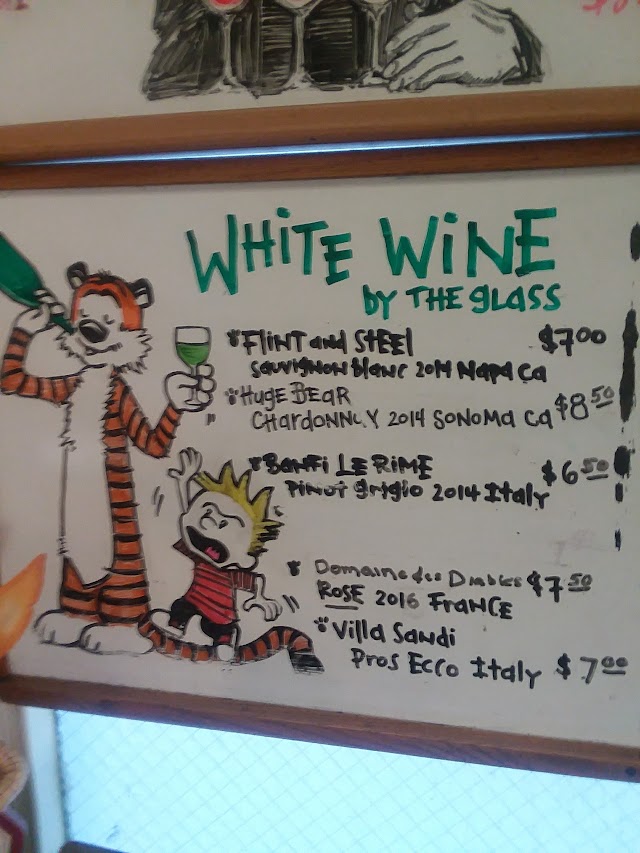 WHITE WINE
by THE glASS
FlINT and STEEL $7.00
Sauvignon blanc 2014 Napa Ca
HugE BEAR
CHardONNaY 2014 SONOMA CA $8.50
BANFi LE RIME $6.50
Pinot grigio 2014 Italy
Domaine des Diables $7.50
ROSE 2016 FRANCE
Villa Sandi
Pros Ecco Italy $7.00